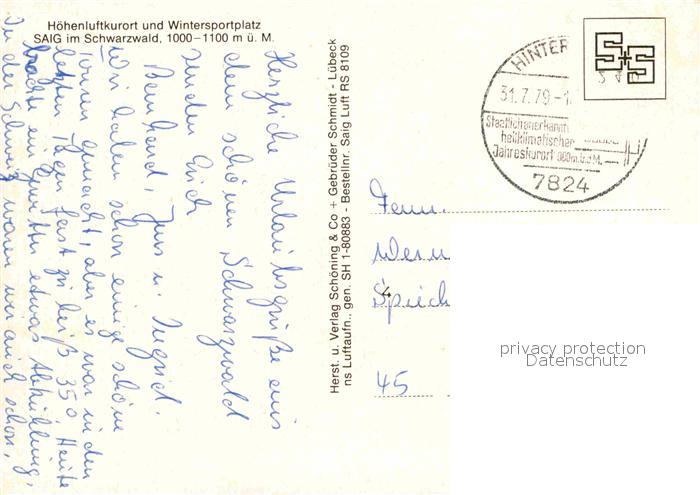 Höhenluftkurort und Wintersportplatz
SAIG im Schwarzwald, 1000–1100 m ü. M.
Herzliche Urlaubsgrüße aus
dem schönen Schwarzwald
senden Euch
Bernhard, Jens u. Ingrid.
Wir haben schon einige schöne
Touren gemacht, aber es war in den
letzten Tagen fast zu heiß 35°. Heute
brachte ein Gewitter etwas Abkühlung.
In der Schweiz waren wir auch schon.
Herst. u. Verlag Schöning & Co + Gebrüder Schmidt - Lübeck
ns Luftaufn., gen. SH 1-80883 - Bestellnr. Saig Luft RS 8109
HINTER
31.7.79-1
Staatlich anerkannt
heilklimatischer
Jahreskurort
7824
S+S
Fam.
Wern
Spiech
45
privacy protection
Datenschutz